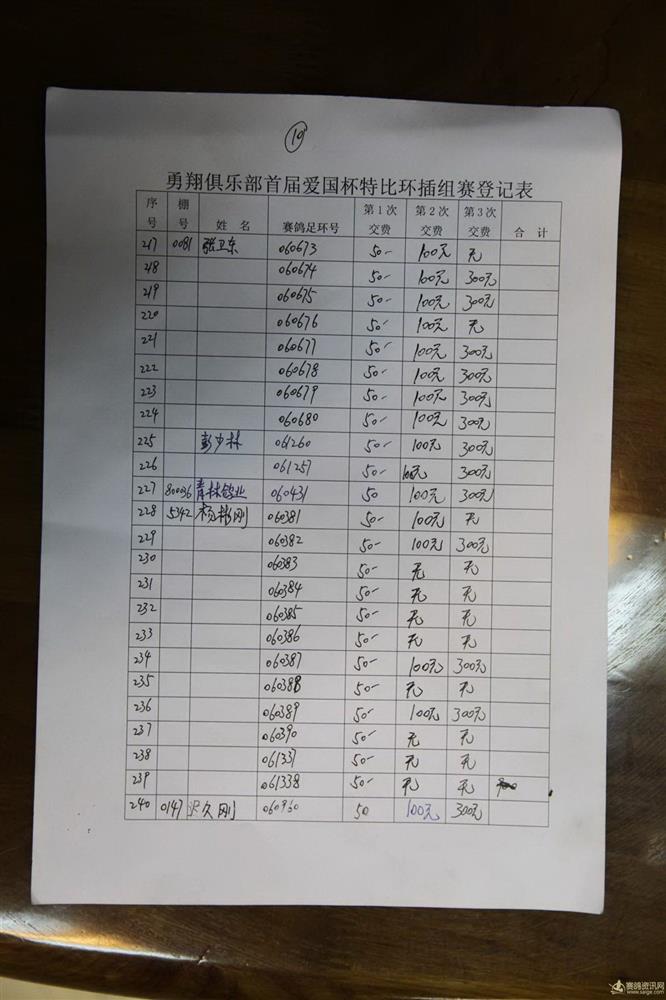 10
勇翔俱乐部首届爱国杯特比环插组赛登记表
序号 棚号 姓名 赛鸽足环号 第1次交费 第2次交费 第3次交费 合计
217 0081 张卫东 060673 50- 100元 无
218 060674 50- 100元 300元
219 060675 50- 100元 300元
220 060676 50- 100元 无
221 060677 50- 100元 300元
222 060678 50- 100元 300元
223 060679 50- 100元 300元
224 060680 50- 100元 300元
225 彭少林 061260 50- 100元 300元
226 061257 50- 100元 300元
227 80036 青林鸽业 060431 50 100元 300元
228 5342 杨彬刚 060381 50- 100元 无
229 060382 50- 100元 300元
230 060383 50- 无 无
231 060384 50- 无 无
232 060385 50- 无 无
233 060386 50- 无 无
234 060387 50- 100元 300元
235 060388 50- 无 无
236 060389 50- 100元 300元
237 060390 50- 无 无
238 061337 50- 无 无
239 061338 50- 无 无
240 0147 久刚 50 100元 300元
赛鸽资讯网
www.saige.com